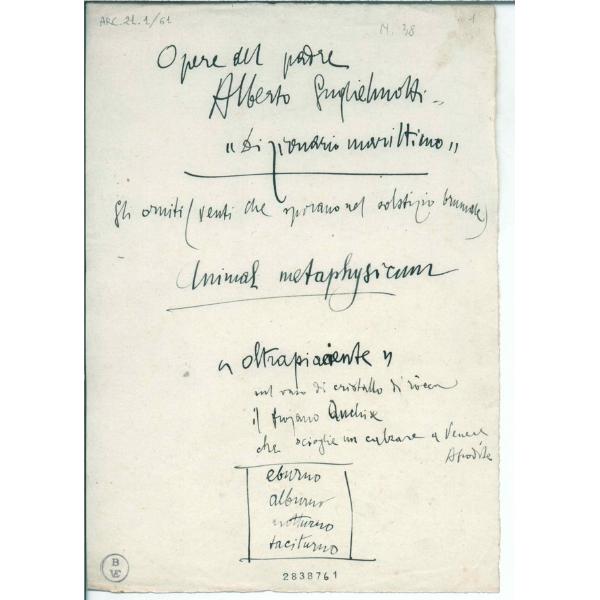 ARC.21.1/61
M. 38
1
Opere del padre
Alberto Guglielmotti
"Dizionario marittimo"
gli orniti (venti che spirano nel solstizio brumale)
Animal metaphysicum
"oltrapiacente"
sul vaso di cristallo di rocca
il trojano Anchise
che scioglie un calzare a Venere
Afrodite
eburno
alburno
notturno
taciturno
B
VE
2838761